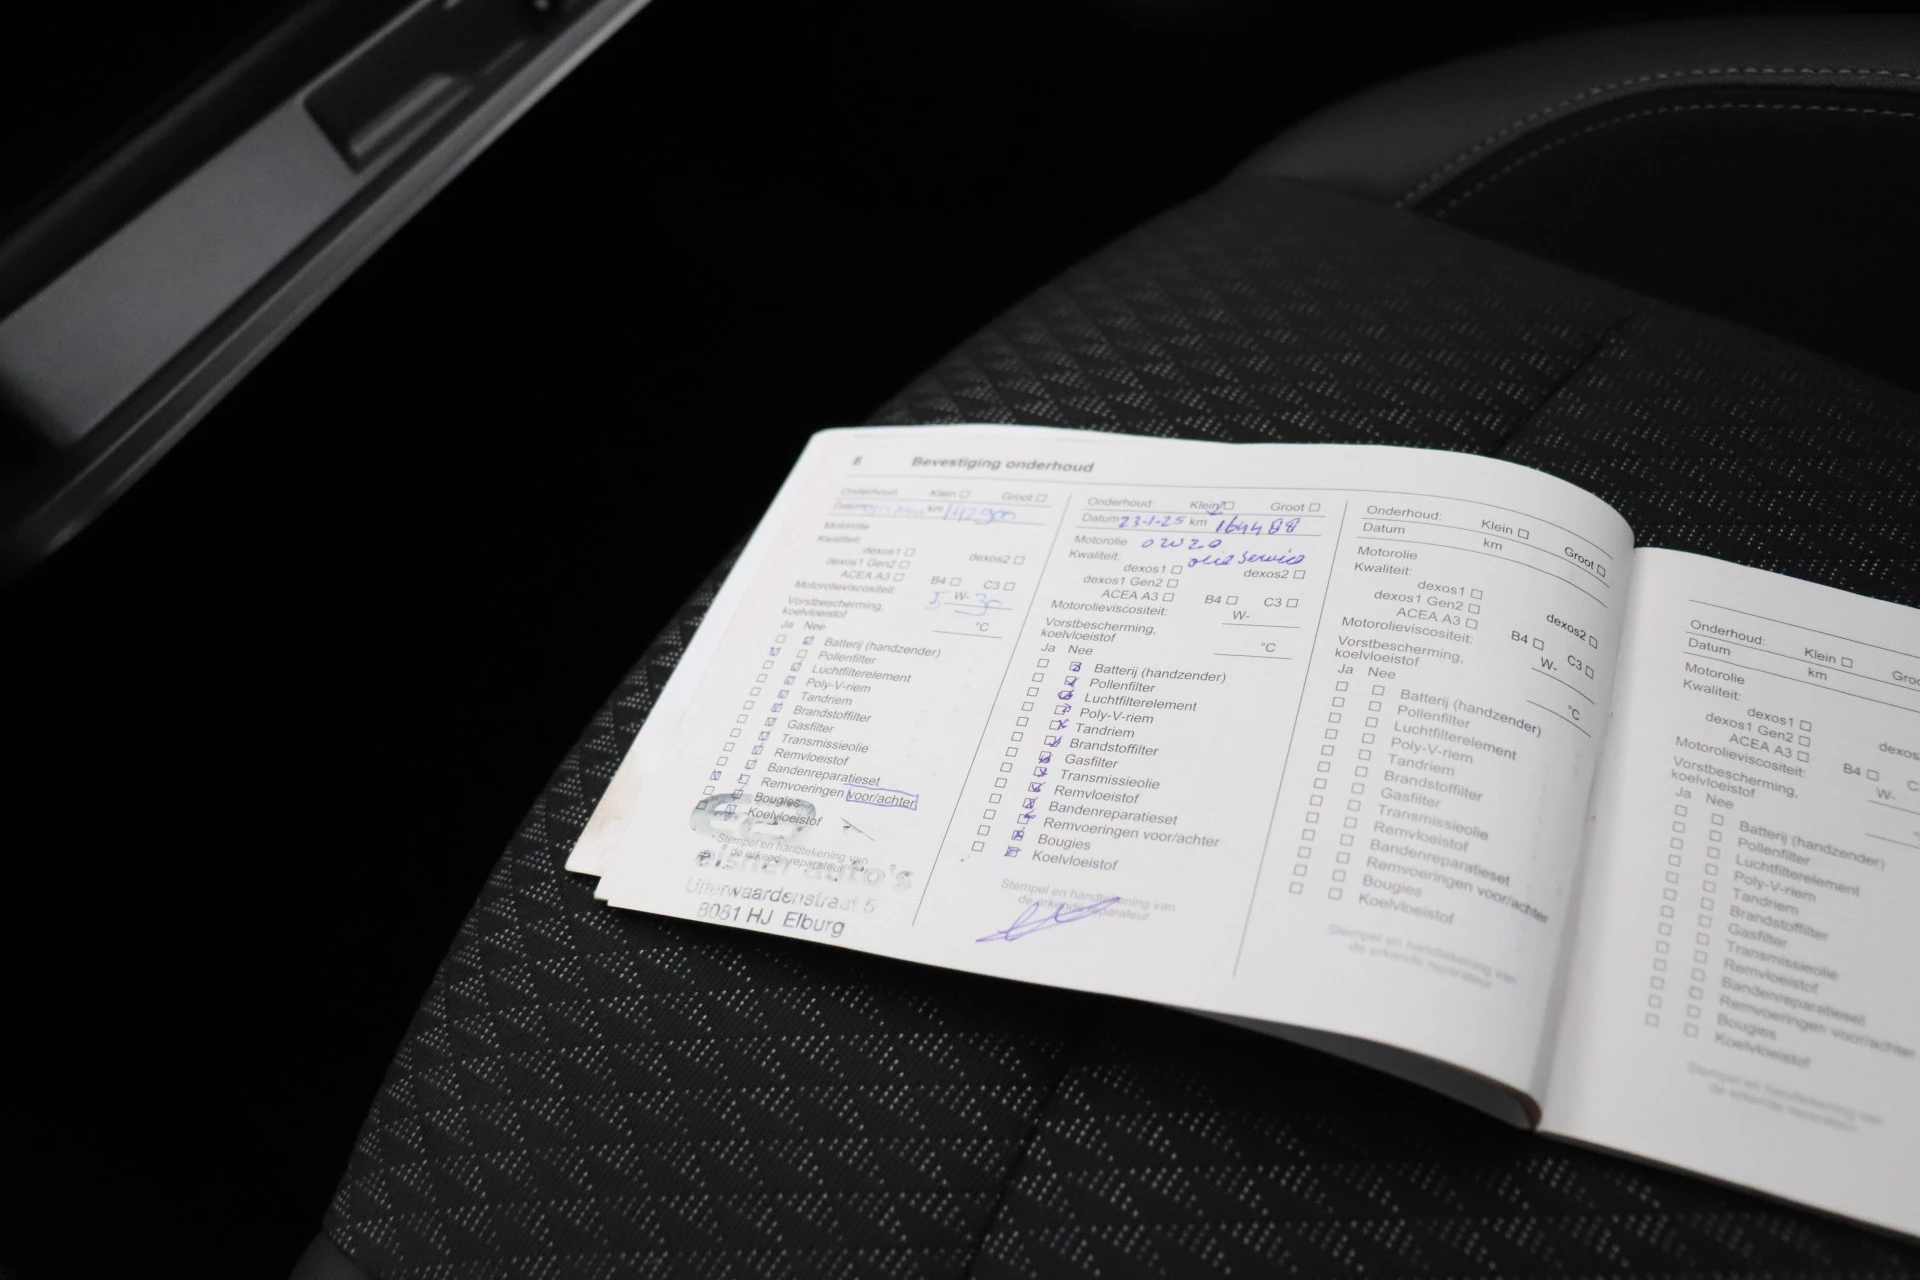 8 Bevestiging onderhoud
Onderhoud: Klein Groot
Datum km 142900
Motorolie
Kwaliteit:
dexos1 dexos2
dexos1 Gen2
ACEA A3 B4 C3
Motorolieviscositeit: 5 W- 30
Vorstbescherming,
koelvloeistof °C
Ja Nee
Batterij (handzender)
Pollenfilter
Luchtfilterelement
Poly-V-riem
Tandriem
Brandstoffilter
Gasfilter
Transmissieolie
Remvloeistof
Bandenreparatieset
Remvoeringen voor/achter
Bougies
Koelvloeistof
Stempel en handtekening van
de erkende reparateur
auto's
Uiterwaardenstraat 5
8081 HJ Elburg
Onderhoud: Klein Groot
Datum 23-1-25 km 164488
Motorolie 0W20
Kwaliteit: olie service
dexos1 dexos2
dexos1 Gen2
ACEA A3 B4 C3
Motorolieviscositeit: W-
Vorstbescherming,
koelvloeistof °C
Ja Nee
Batterij (handzender)
Pollenfilter
Luchtfilterelement
Poly-V-riem
Tandriem
Brandstoffilter
Gasfilter
Transmissieolie
Remvloeistof
Bandenreparatieset
Remvoeringen voor/achter
Bougies
Koelvloeistof
Stempel en handtekening van
de erkende reparateur
Onderhoud: Klein Groot
Datum km
Motorolie
Kwaliteit:
dexos1 dexos2
dexos1 Gen2
ACEA A3 B4 C3
Motorolieviscositeit: W-
Vorstbescherming,
koelvloeistof °C
Ja Nee
Batterij (handzender)
Pollenfilter
Luchtfilterelement
Poly-V-riem
Tandriem
Brandstoffilter
Gasfilter
Transmissieolie
Remvloeistof
Bandenreparatieset
Remvoeringen voor/achter
Bougies
Koelvloeistof
Stempel en handtekening van
de erkende reparateur
Onderhoud: Klein
Datum km
Motorolie
Kwaliteit:
dexos1
dexos1 Gen2
ACEA A3 B4
Motorolieviscositeit: W-
Vorstbescherming,
koelvloeistof
Ja Nee
Batterij (handzender)
Pollenfilter
Luchtfilterelement
Poly-V-riem
Tandriem
Brandstoffilter
Gasfilter
Transmissieolie
Remvloeistof
Bandenreparatieset
Remvoeringen voor/achter
Bougies
Koelvloeistof
Stempel en handtekening van
de erkende reparateur